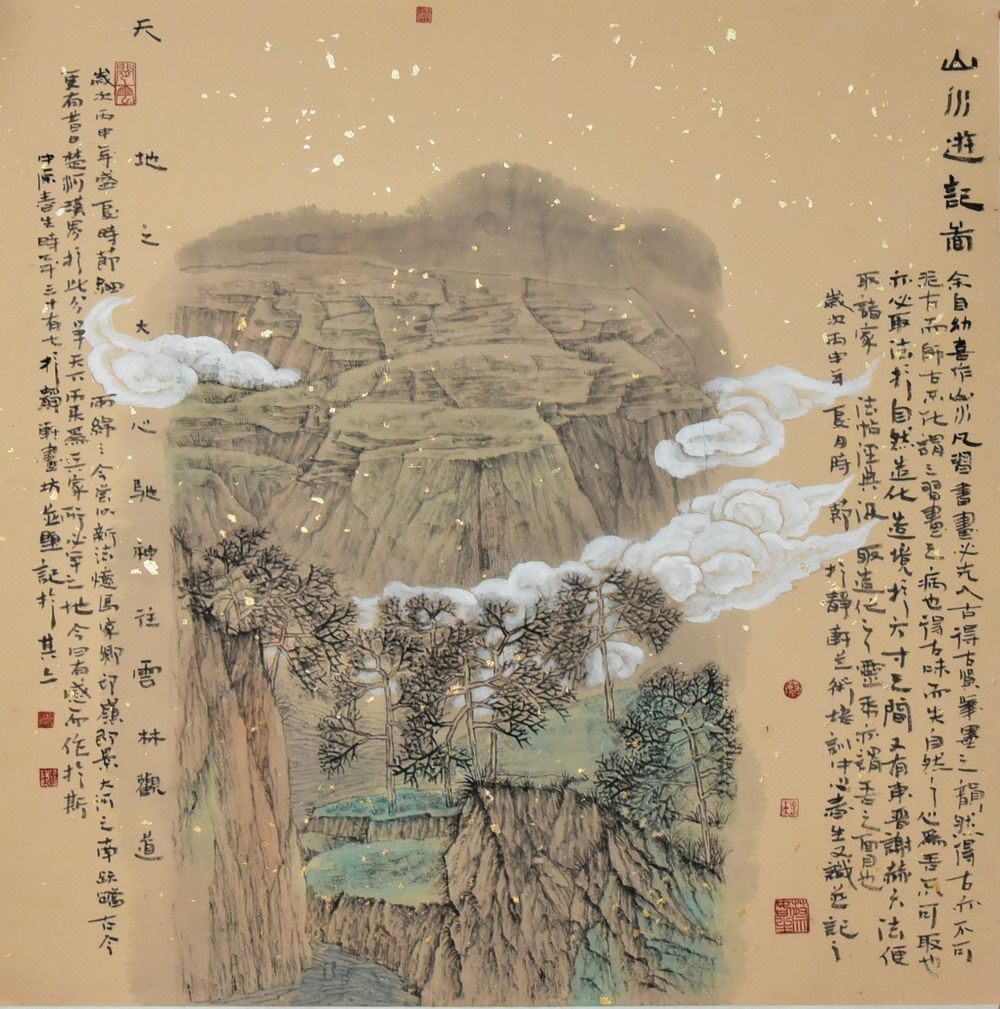 山川遊記啚
余自幼喜作山川凡習書畫必先入古得古賢筆墨之韻然得古亦不可
泥古而師古不化謂之習畫之病也得古味而失自然之心為吾不可取也
亦必取法於自然造化造境於六寸之間又有東晋謝赫六法便
取諸家法帖經典汲取造化之靈氣亦謂吾之面目也
歲次丙申年夏月時節於靜軒藝術培訓中心壽生又識並記之
天地之大心馳神往雲林觀道
歲次丙申年盛夏時節細雨綿綿今嘗以新法憶寫家鄉邙嶺即景大河之南古今
更有昔日楚河漢界於此分爭天下為兵家所必爭之地今日有感而作於斯
中原壽生時年三十有七於靜軒畫坊並題記於其上